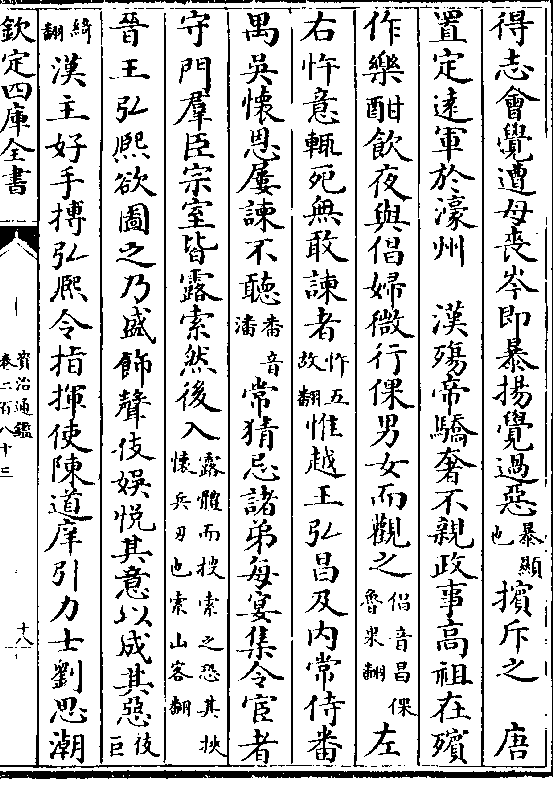 得志會覺遭母喪岑即暴揚覺過惡暴顯也擯斥之　唐
置定逺軍於濠州　漢殤帝驕奢不親政事髙祖在殯
作樂酣飲夜與倡婦微行倮男女而觀之倡音昌倮魯果翻左
右忤意輒死無敢諫者忤五故翻惟越王弘昌及内常侍番
禺吳懷恩屢諫不聽番音潘常猜忌諸弟每宴集令宦者
守門羣臣宗室皆露索然後入露體而搜索之恐其挾懷兵刃也索山客翻
晉王弘熈欲圖之乃盛飾聲伎娛悦其意以成其惡伎巨
綺翻漢主好手搏弘熈令指揮使陳道庠引力士劉思潮
欽定四庫全書
資治通鑑
卷二百八十三
十八